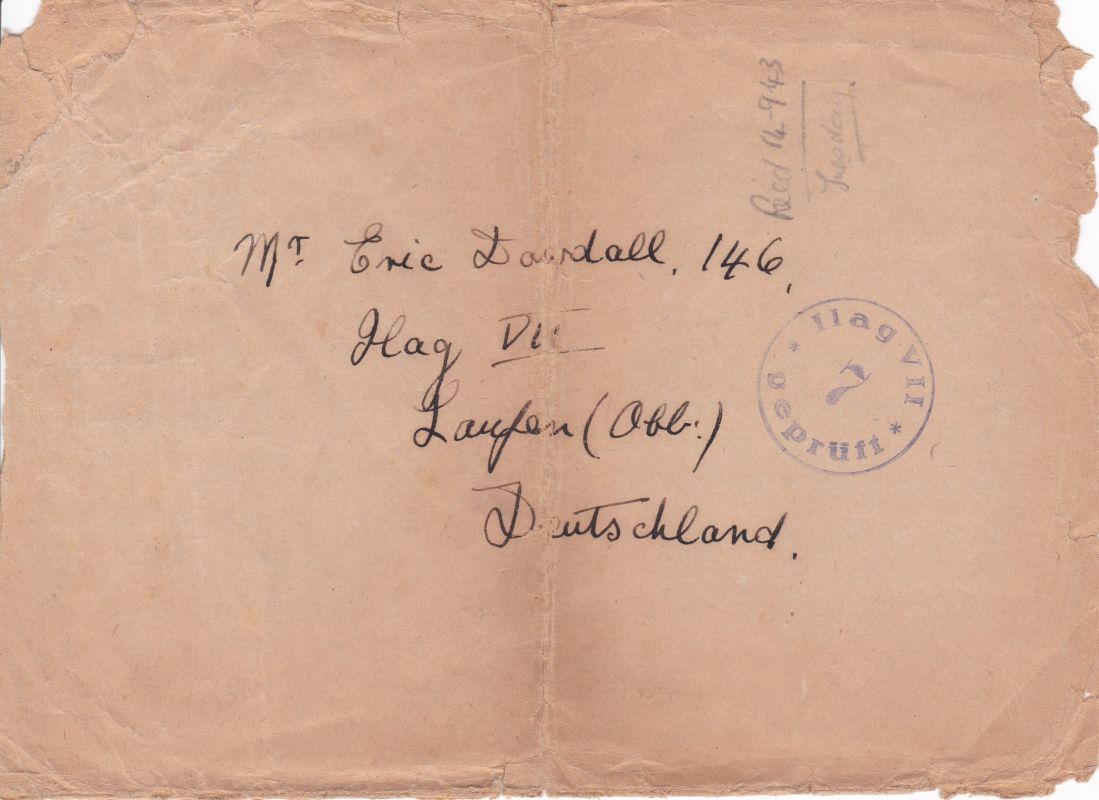 Rec'd 14-9-43
Tuesday.
Mr. Eric Dowdall, 146,
Ilag VII
Laufen (Obb:)
Deutschland.
* Ilag VII *
7
geprüft